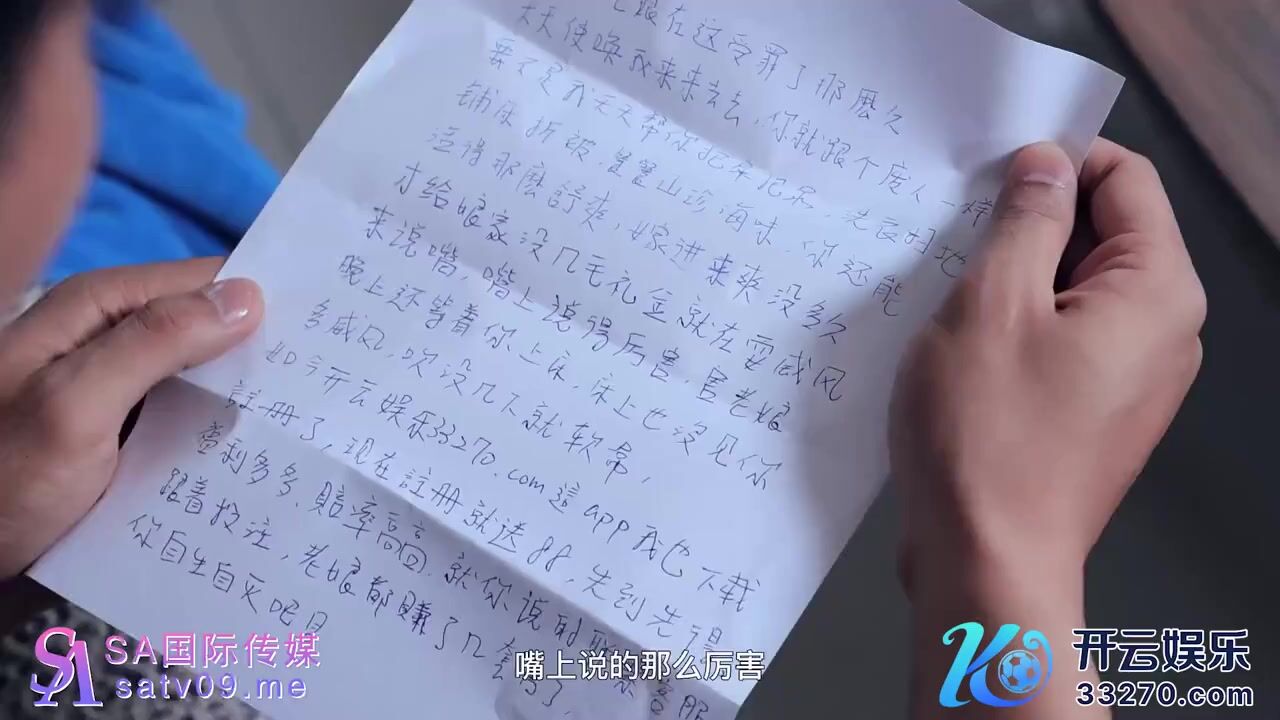 跟在这受罪了那麽久
天天使唤我来来去去，你就跟个废人一样
要不是我天天帮你把屎把尿，洗衣妇地
铺床折被，置置山珍海味，你还能
活得那麽舒爽，嫁进来来没多久
才给娘家没几毛礼金就在耍威风
来说嘴，嘴上说得厉害，官老娘
晚上还等着你上床，床上也没见你
多威风，吹没几下就软常，
如今开云娱乐33270.com這app我也下载
註册了，现在註册就送88，先到先得
盈利多多、赔率高高，就你说的
跟着投注，老娘都賺了几套房了，
你自生自灭吧
SA国际传媒
satv09.me
嘴上说的那么厉害
开云娱乐
33270.com